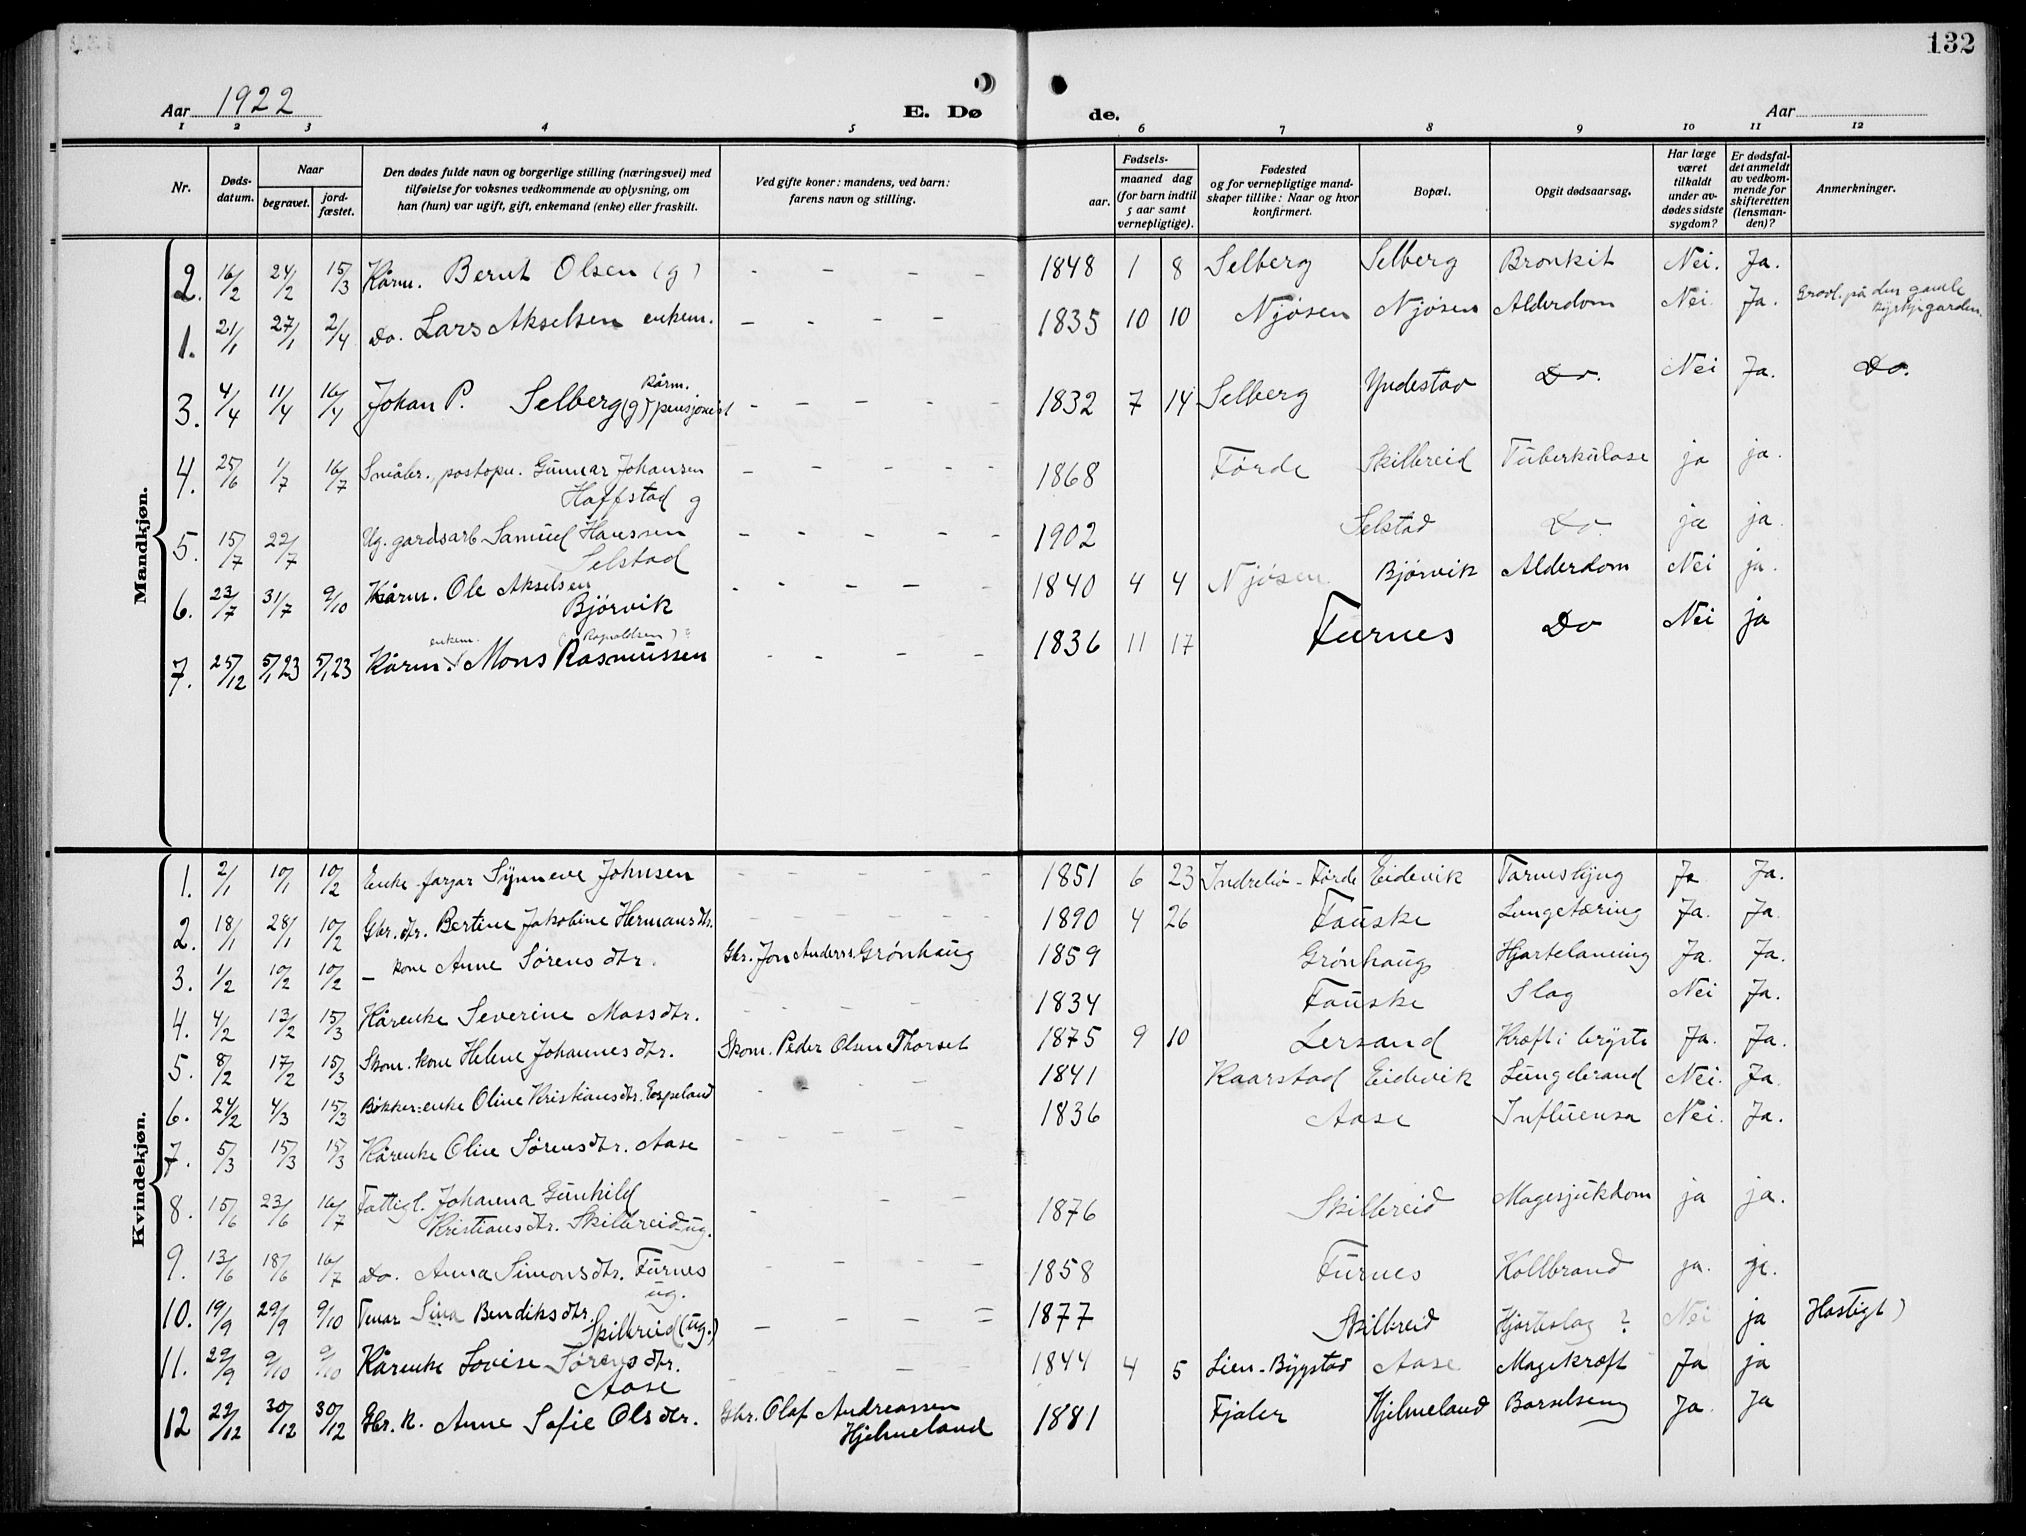 132
Aar 1922 E. Dø de. Aar
1 2 3 4 5 6 7 8 9 10 11 12
Nr. Døds-datum. Naar begravet. jord-fæstet. Den dødes fulde navn og borgerlige stilling (næringsvei) med tilføielse for voksnes vedkommende av oplysning, om han (hun) var ugift, gift, enkemand (enke) eller fraskilt. Ved gifte koner: mandens, ved barn: farens navn og stilling. Fødsels- aar. maaned dag (for barn indtil 5 aar samt vernepligtige). Fødested og for vernepligtige mand-skaper tillike: Naar og hvor konfirmert. Bopæl. Opgit dødsaarsag. Har læge været tilkaldt under av-dødes sidste sygdom? Er dødsfal-det anmeldt av vedkom-mende for skifteretten (lensman-den)? Anmerkninger.
Mandkjøn.
2. 16/2 24/2 15/3 Kårm. Bernt Olsen (g) - - - - 1848 1 8 Selberg Selberg Bronkit Nei. Ja.
1. 21/1 27/1 2/4 Do. Lars Akselsen enkem. - - - - 1835 10 10 Njøsen Njøsen Alderdom Nei. Ja. på den gamle kyrkjegarden.
3. 4/4 11/4 16/4 Johan P. Selberg (g) kårm. pensjonist - - - - 1832 7 14 Selberg Yndestad Do. Nei Ja. Do.
4. 25/6 1/7 16/7 Småbr., postopn. Gunnar Johansen - - - - 1868 Førde Skilbreid Tuberkulose ja ja.
Hoffstad g
5. 15/7 22/7 Ug. gardsarb. Samuel Hanssen - - - - 1902 Selstad Do. ja ja.
Selstad
6. 23/7 31/7 9/10 Kårm. Ole Akselsen - - - - 1840 4 4 Njøsen Bjørvik Alderdom Nei ja.
Bjørvik
enkem. (Ragnaldsen)?
7. 25/12 5/1 23 5/1 23 Kårm. Mons Rasmussen - - - - 1836 11 17 Furnes Do Nei ja
Kvindekjøn.
1. 2/1 10/1 10/2 Enke fargar Synneve Johnsen - - - - 1851 6 23 Indrebø - Førde Eidevik Tarmslyng Ja Ja.
2. 18/1 28/1 10/2 Gbr. dtr. Bertine Jakobine Hermansdtr. - - - - 1890 4 26 Fauske Lungetæring Ja. Ja.
3. 1/2 10/2 10/2 - kone Anne Sørensdtr. Gbr. Jon Anders. Grønhaug 1859 Grønhaug Hjartelaming Ja. Ja.
4. 4/2 13/2 15/3 Kårenke Severine Massdtr. - - - - 1834 Fauske Slag Nei Ja.
5. 8/2 17/2 15/3 Skom. kone Helene Johannesdtr. Skom. Peder Olsen Thorset 1875 9 10 Lersand Kræft i bryste Ja. Ja.
6. 24/2 4/3 15/3 Bøkker-enke Oline Kristiansdtr. Espeland - - - - 1841 Kaarstad Eidevik Lungebrand Nei. Ja.
7. 5/3 15/3 15/3 Kårenke Oline Sørensdtr. Aase - - - - 1836 Aase Influensa Nei. Ja.
8. 15/6 23/6 16/7 Fattigl. Johanna Gunhild - - - 1876 Skilbreid Magesjukdom ja ja.
Kristiansdtr. Skilbreid ug.
9. 13/6 18/6 16/7 Do. Anna Simonsdtr. Furnes - - - - 1858 Furnes Kollbrand ja. ja.
ug.
10. 19/9 29/9 9/10 Tenar Sina Bendiksdtr. - - - = 1877 Skilbreid Hjarteslag ? Nei ja Hastigt)
Skilbreid (ug.)
11. 29/9 9/10 9/10 Kårenke Lovise Sørensdtr. - - - - 1844 4 5 Lien - Bygstad Aase Magekræft Ja ja
Aase
12 23/12 30/12 30/12 Gbr. k. Anne Sofie Olsdtr. Gbr. Olaf Andreassen 1881 Fjaler Hjelmeland Barselseng Ja. Ja
Hjelmeland